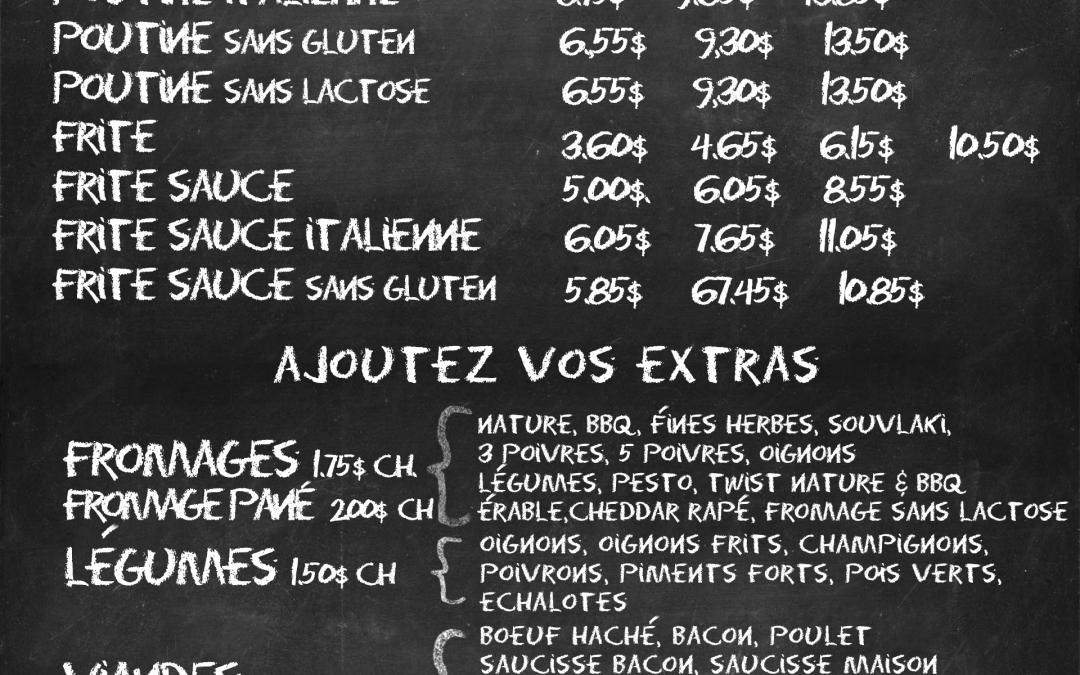 POUTINE ITALIENNE
POUTINE SANS GLUTEN 6,55$ 9,30$ 13.50$
POUTINE SANS LACTOSE 6.55$ 9,30$ 13.50$
FRITE 3.60$ 4.65$ 6.15$ 10.50$
FRITE SAUCE 5.00$. 6.05$ 8.55$
FRITE SAUCE ITALIENNE 6.05$ 7.65$ 11.05$
FRITE SAUCE SANS GLUTEN 5.85$ 67.45$ 10.85$
AJOUTEZ VOS EXTRAS
NATURE, BBQ, FINES HERBES, SOUVLAKI,
FROMAGES 1.75$ CH. 3 POIVRES, 5 POIVRES, OIGNONS
LÉGUMES, PESTO, TWIST NATURE & BBQ
FROMAGE PANÉ 2.00$ CH ÉRABLE,CHEDDAR RAPÉ, FROMAGE SANS LACTOSE
OIGNONS, OIGNONS FRITS, CHAMPIGNONS,
LÉGUMES 1.50$ CH POIVRONS, PIMENTS FORTS, POIS VERTS,
ECHALOTES
BOEUF HACHÉ, BACON, POULET
VIANDES SAUCISSE BACON, SAUCISSE MAISON